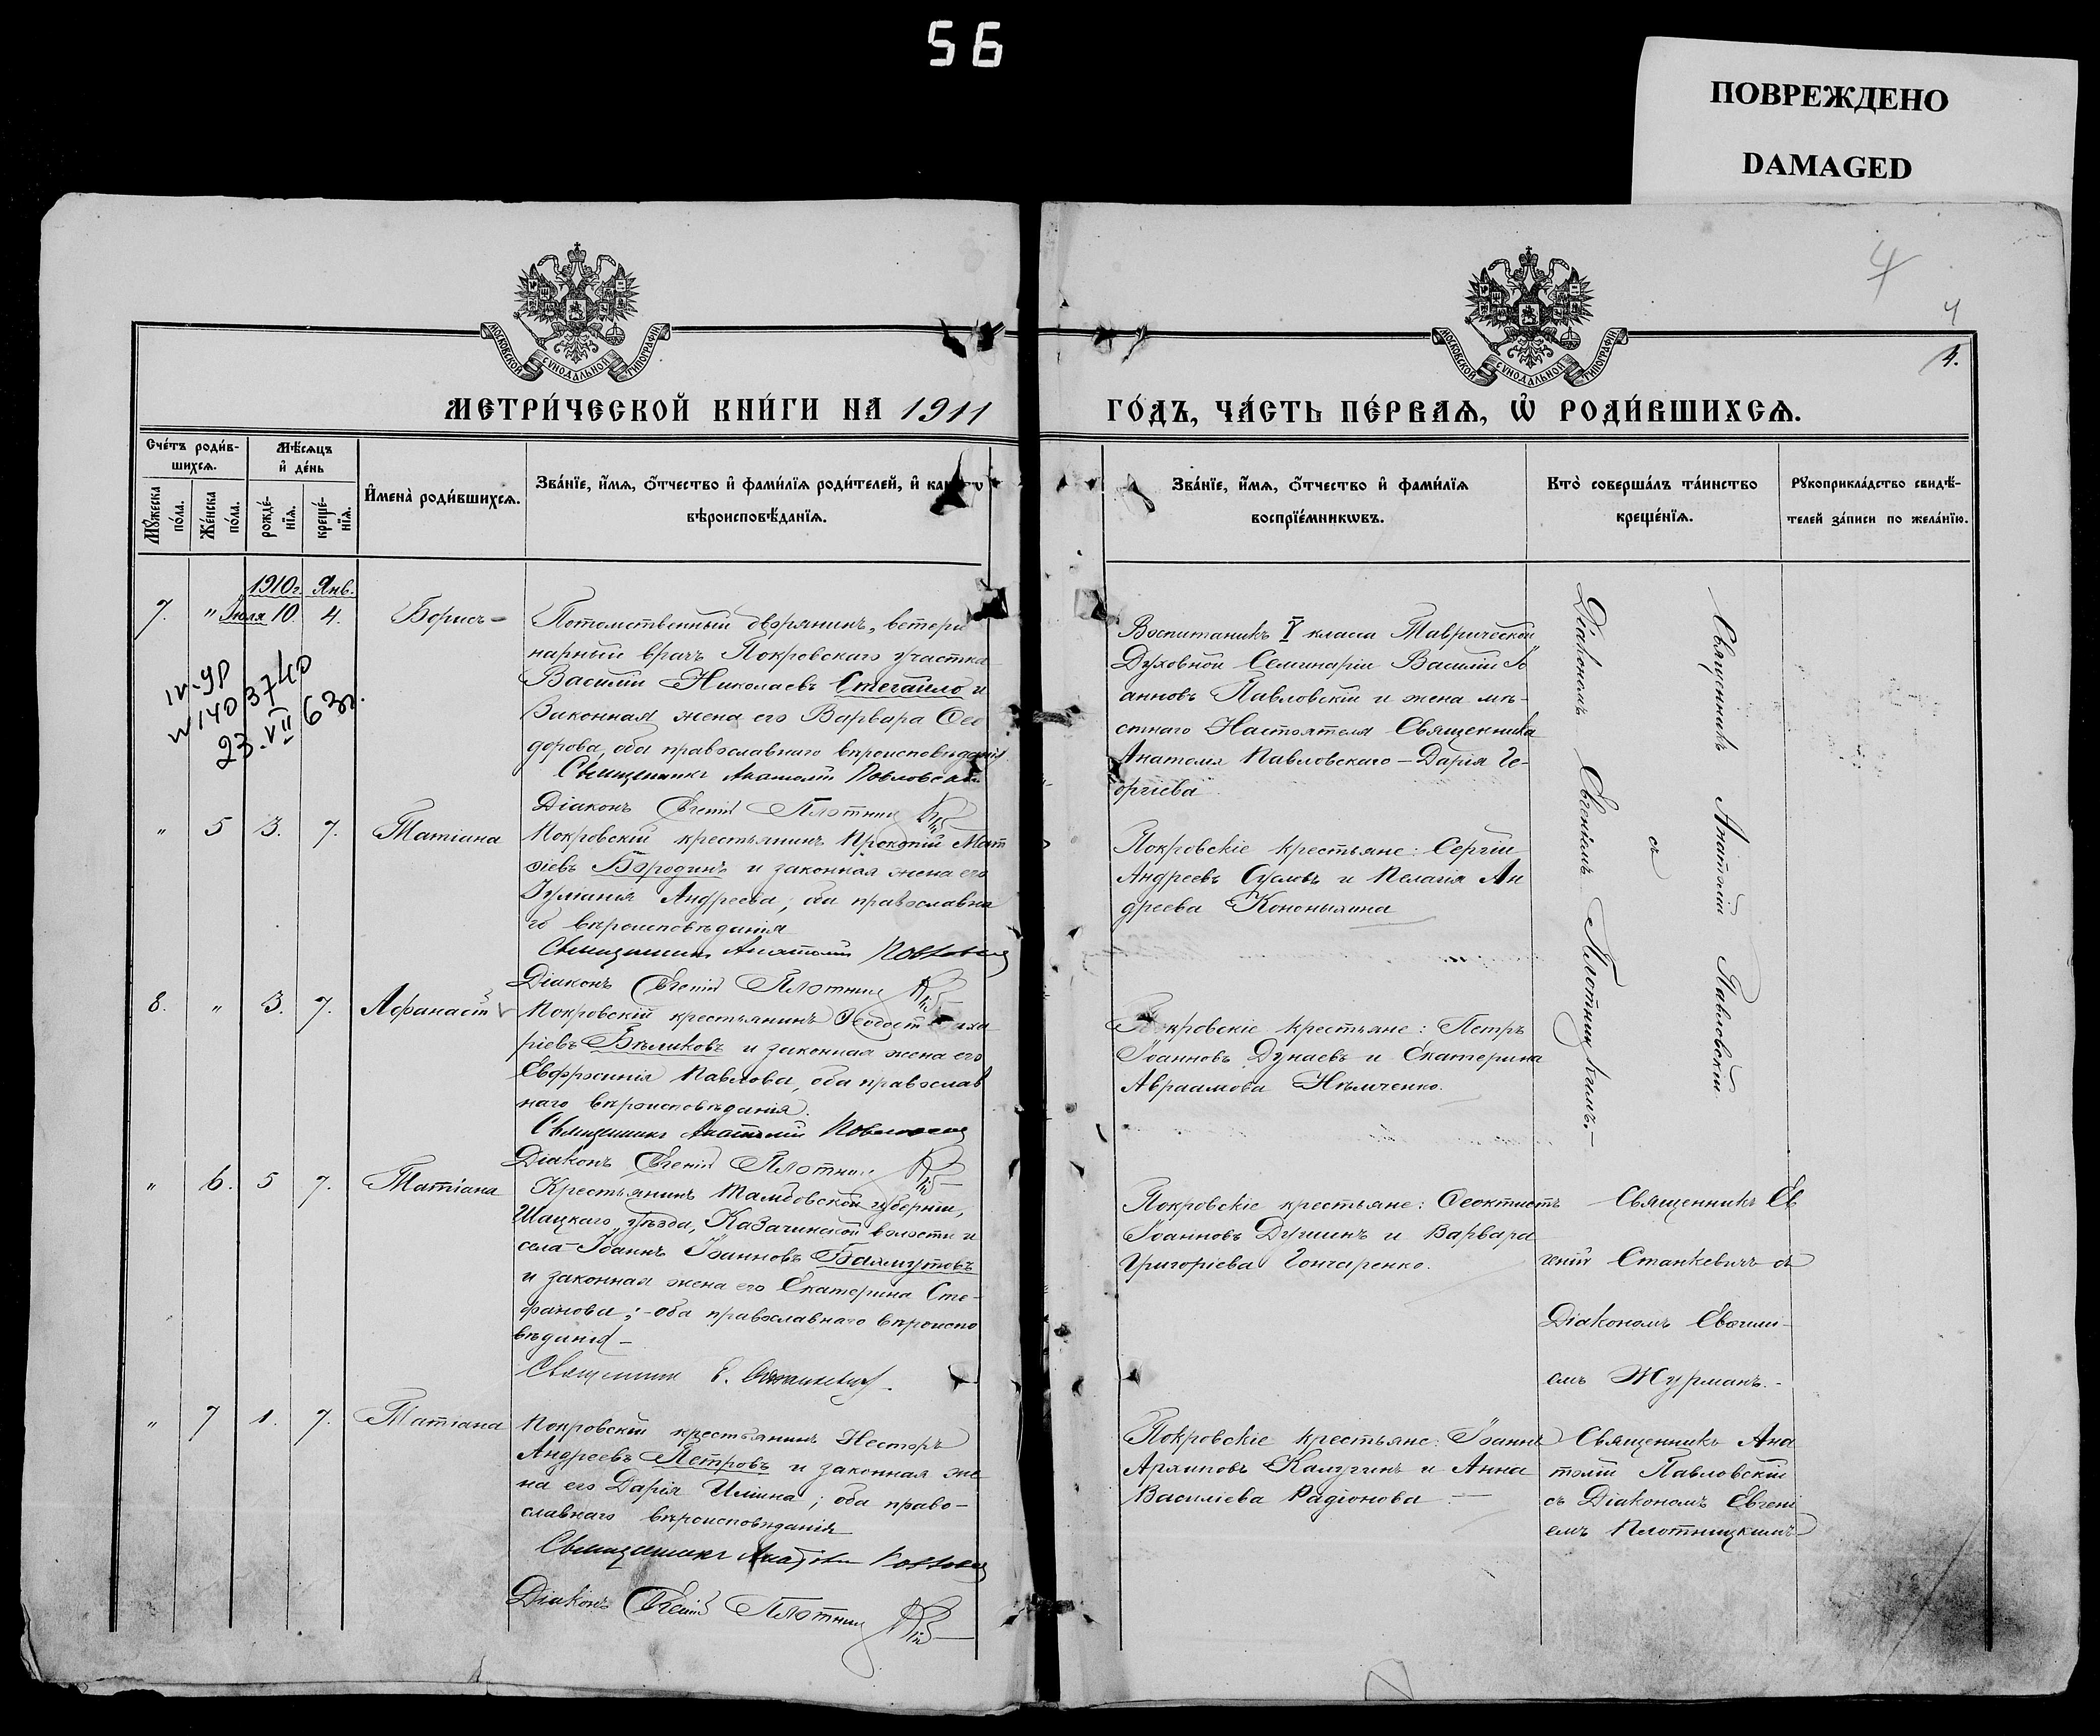 56
ПОВРЕЖДЕНО
DAMAGED
4
4
4.
МОСКОВСКОЙ СѴНОДАЛЬНОЙ ТИПОГРАФІИ
МОСКОВСКОЙ СѴНОДАЛЬНОЙ ТИПОГРАФІИ
МЕТРИ́ЧЕСКОЙ КНИ́ГИ НА 1911
ГО́ДЪ, ЧА́СТЬ ПЕ́РВАѦ, Ѽ РОДИ́ВШИХСѦ.
Сче́тъ роди́в-
шихсѧ.
Мѣ́сѧцъ
и҆ де́нь
Мꙋ́жеска
по́ла.
Же́нска
по́ла.
рожде́-
нїѧ.
креще́-
нїѧ.
И҆мена̀ роди́вшихсѧ.
Зва́нїе, и҆́мѧ, ѻ҆́тчество и҆ фами́лїѧ роди́телей, и҆
вѣроисповѣ́данїѧ.
Зва́нїе, и҆́мѧ, ѻ҆́тчество и҆ фами́лїѧ
воспрїе́мникѡвъ.
Кто̀ соверша́лъ та́инство
креще́нїѧ.
Рꙋкоприкла́дство свидѣ́-
телей за́писи по жела́нїю.
1910г. Янв.
7. " Іюля 10. 4. Борисъ
Потомственный дворянинъ, ветери
нарный врачъ Покровскаго участка
Василій Николаевъ Стегайло и
законная жена его Варвара Ѳео
дорова, оба православнаго вѣроисповѣданія
Священникъ Анатолій Павловскій
Діаконъ Евгеній Плотницкій
23.VII 63г.
Воспитаникъ V класса Таврической
Духовной Семинаріи Василій Іо
анновъ Павловскій и жена мѣ-
стнаго Настоятеля Священника
Анатолія Павловскаго - Дарія Ге-
оргіева
Священникъ Анатолій Павловскій
съ
Діакономъ Евгеніемъ Плотницкимъ.-
" 5 3. 7. Татіана
Покровскій крестьянинъ Прокопій Мат
ѳіевъ Бородинъ и законная жена его
Іуліанія Андреева, оба православна
го вѣроисповѣданія
Священникъ Анатолій Павловскій
Діаконъ Евгеній Плотницкій
Покровскіе крестьяне: Сергій
Андреевъ Сусловъ и Пелагія Ан
дреева Кононыхина
8. " 3. 7. Аѳанасій
Покровскій крестьянинъ Ѳеодост
ріевъ Бѣликовъ и законная жена его
Евфросинія Павлова, оба православ
наго вѣроисповѣданія.
Священникъ Анатолій Павловскій
Діаконъ Евгеній Плотницкій
Покровскіе крестьяне: Петръ
Іоанновъ Дунаевъ и Екатерина
Авраамова Нѣмченко.
" 6. 5 7. Татіана
Крестьянинъ Тамбовской губерніи,
Шацкаго уѣзда, Казачинской волости и
села Іоаннъ Іоанновъ Баямутовъ
и законная жена его Екатерина Сте-
фанова; - оба православнаго вѣроиспо
вѣданія -
Священникъ Е. Станкевичъ.
Покровскіе крестьяне: Ѳеоктистъ
Іоанновъ Душинъ и Варвара
Григоріева Гончаренко.
Священникъ Ев
геній Станкевичъ съ
Діакономъ Евѳимі-
емъ Журманъ.-
" 7 1. 7. Татіана
Покровскій крестьянинъ Несторъ
Андреевъ Петровъ и законная же
на его Дарія Иліина; оба право-
славнаго вѣроисповѣданія
Священникъ Анатолій Павловскій
Діаконъ Евгеній Плотницкій
Покровскіе крестьяне: Іоаннъ
Архиповъ Калугинъ и Анна
Василіева Радіонова. -
Священникъ Ана
толій Павловскій
съ Діакономъ Евгені
емъ Плотницкимъ